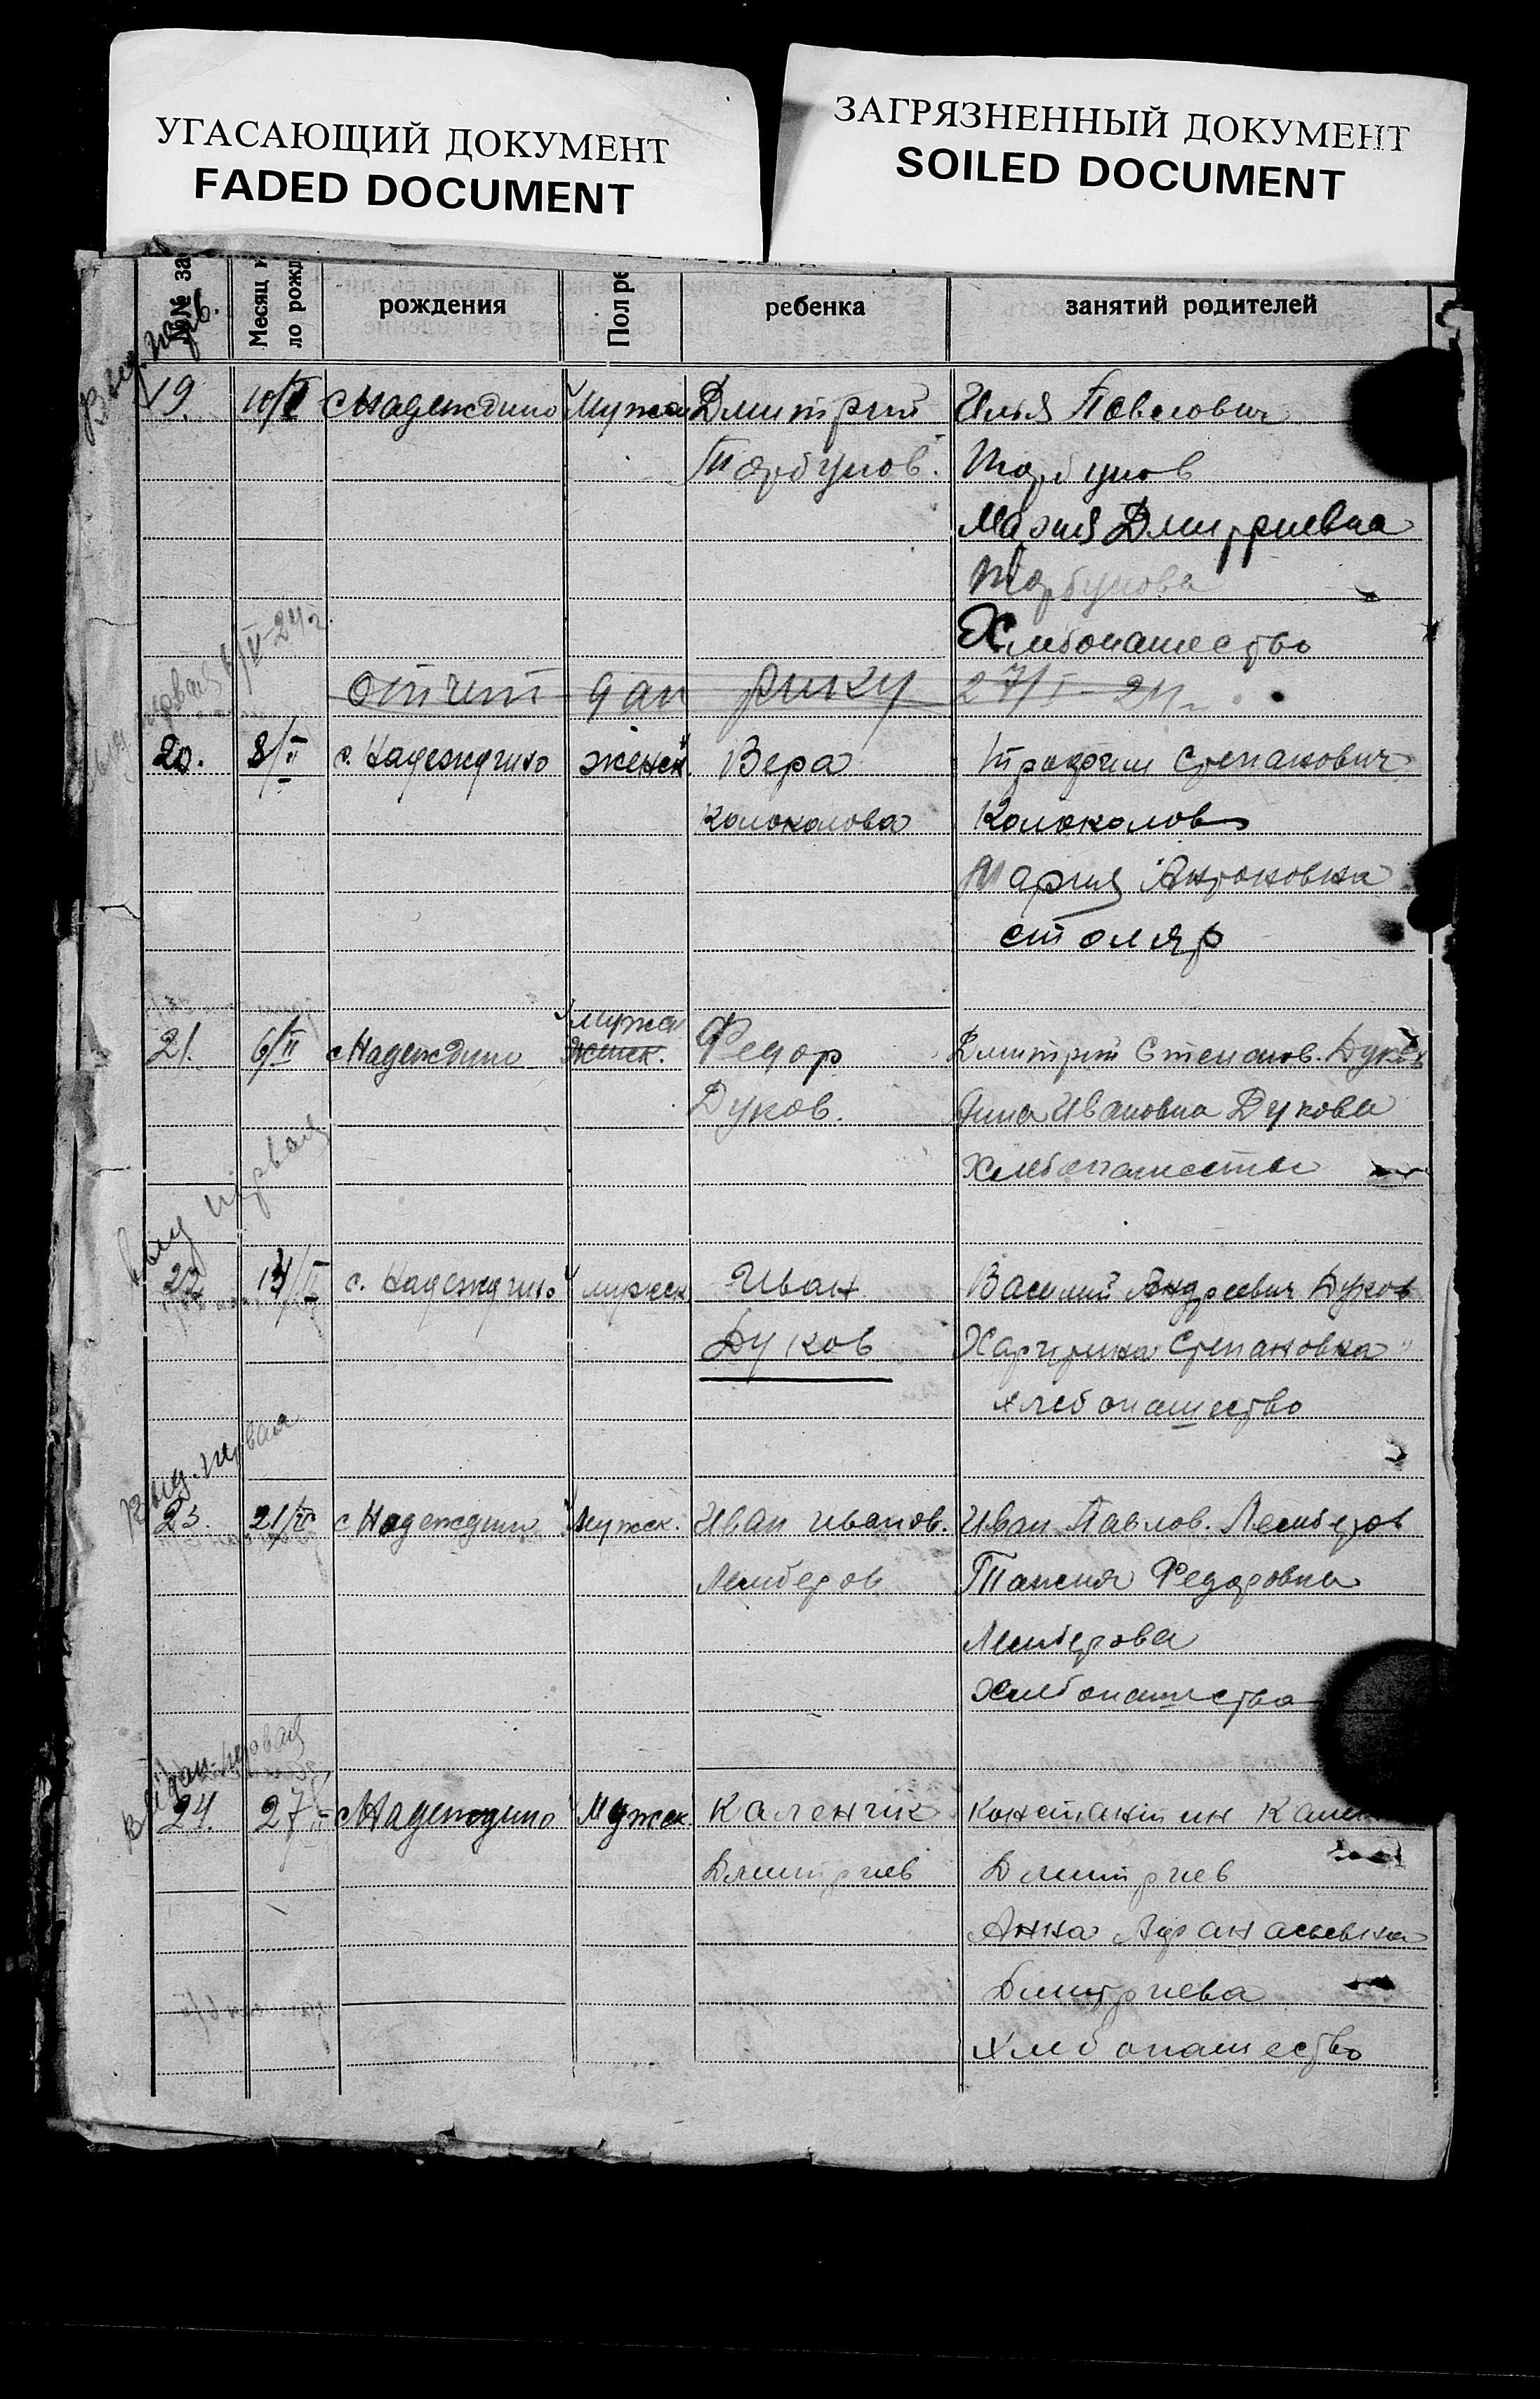 УГАСАЮЩИЙ ДОКУМЕНТ
FADED DOCUMENT
ЗАГРЯЗНЕННЫЙ ДОКУМЕНТ
SOILED DOCUMENT
№№ за
Месяц и
ло рожд
рождения
Пол ре
ребенка
занятий родителей
Выд. перв.
19. 10/I с Надеждино Мужск Дмитрий Илья Павлович
Торбунов. Торбунов
Мария Дмитриевна
Торбунова
Хлебопашество
первая /V-24г
отчет дан рику 27/I-24г.
20. 8/II с. Надеждино женск. Вера Трофим Степанович
Колоколова Колоколов
Мария Антоновна
столяр
мужск
21. 6/II с Надеждино женск. Федор Дмитрий Степанов. Дуков
Дуков. Анна Ивановна Дукова
Хлебопашество
выд первая
22 14/II с. Надеждино мужск Иван Василий Андреевич Дуков
Дуков Степановна "
хлебопашество
Выд. первая
23. 21/II с Надеждино Мужск. Иван Иванов. Иван Павлов. Лемберов
Лемберов Таисия Федоровна
Лемберова
Хлебопашество
Выдан. первая
24. 27/II с Надеждино Мужск. Каленик Константин
Дмитриев Дмитриев
Анна Афанасьевна
Дмитриева
хлебопашество